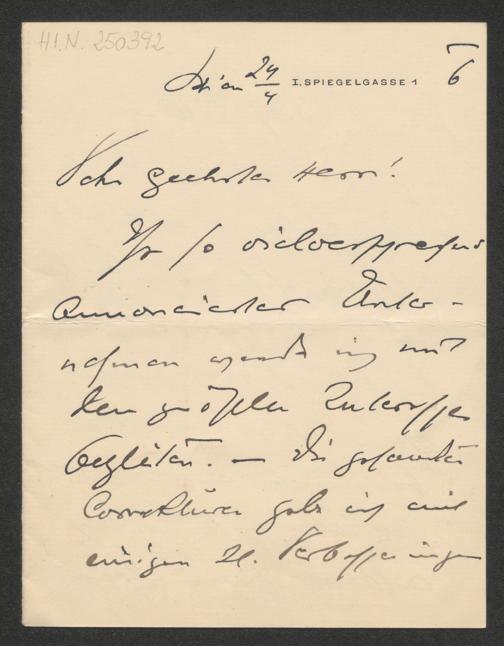 H.I.N. 250392
Wien 24/4 I. SPIEGELGASSE 1 6
Sehr geehrter Herr!
Ihr so vielversprechend
annoncirtes Unter-
nehmen werde ich mit
dem größten Interesse
begleiten. – Die gesandten
Correkturen gebe ich mit
einigen Verbesserungen